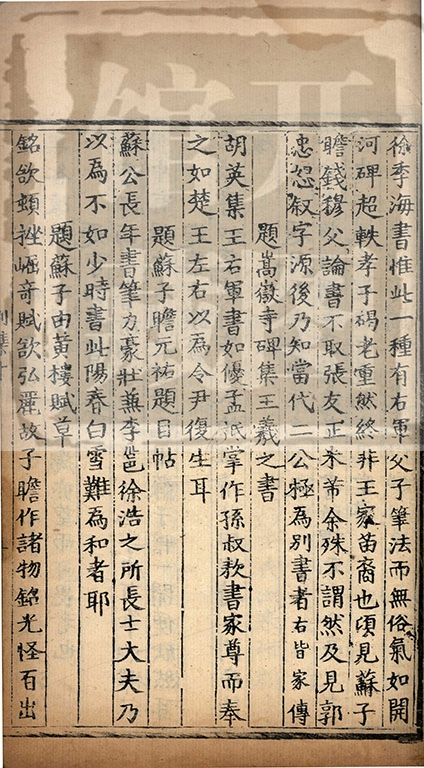 徐季海書惟此一種有右軍父子筆法而無俗氣如開
河碑超軼孝子碣老重然終非王家苗裔也頃見蘇子
瞻錢穆父論書不取張友正米芾余殊不謂然及見郭
忠恕叙字源後乃知當代二公極為別書者右皆家傳
題嵩嶽寺碑集王羲之書
胡英集王右軍書如優孟抵掌作孫叔敖書家尊而奉
之如楚王左右以為令尹復生耳
題蘇子瞻元祐題目帖
蘇公長年書筆力豪壯兼李邕徐浩之所長士大夫乃
以為不如少時書此陽春白雪難為和者耶
題蘇子由黃樓賦草
銘欲頓挫崛奇賦欲弘麗故子瞻作諸物銘光怪百出